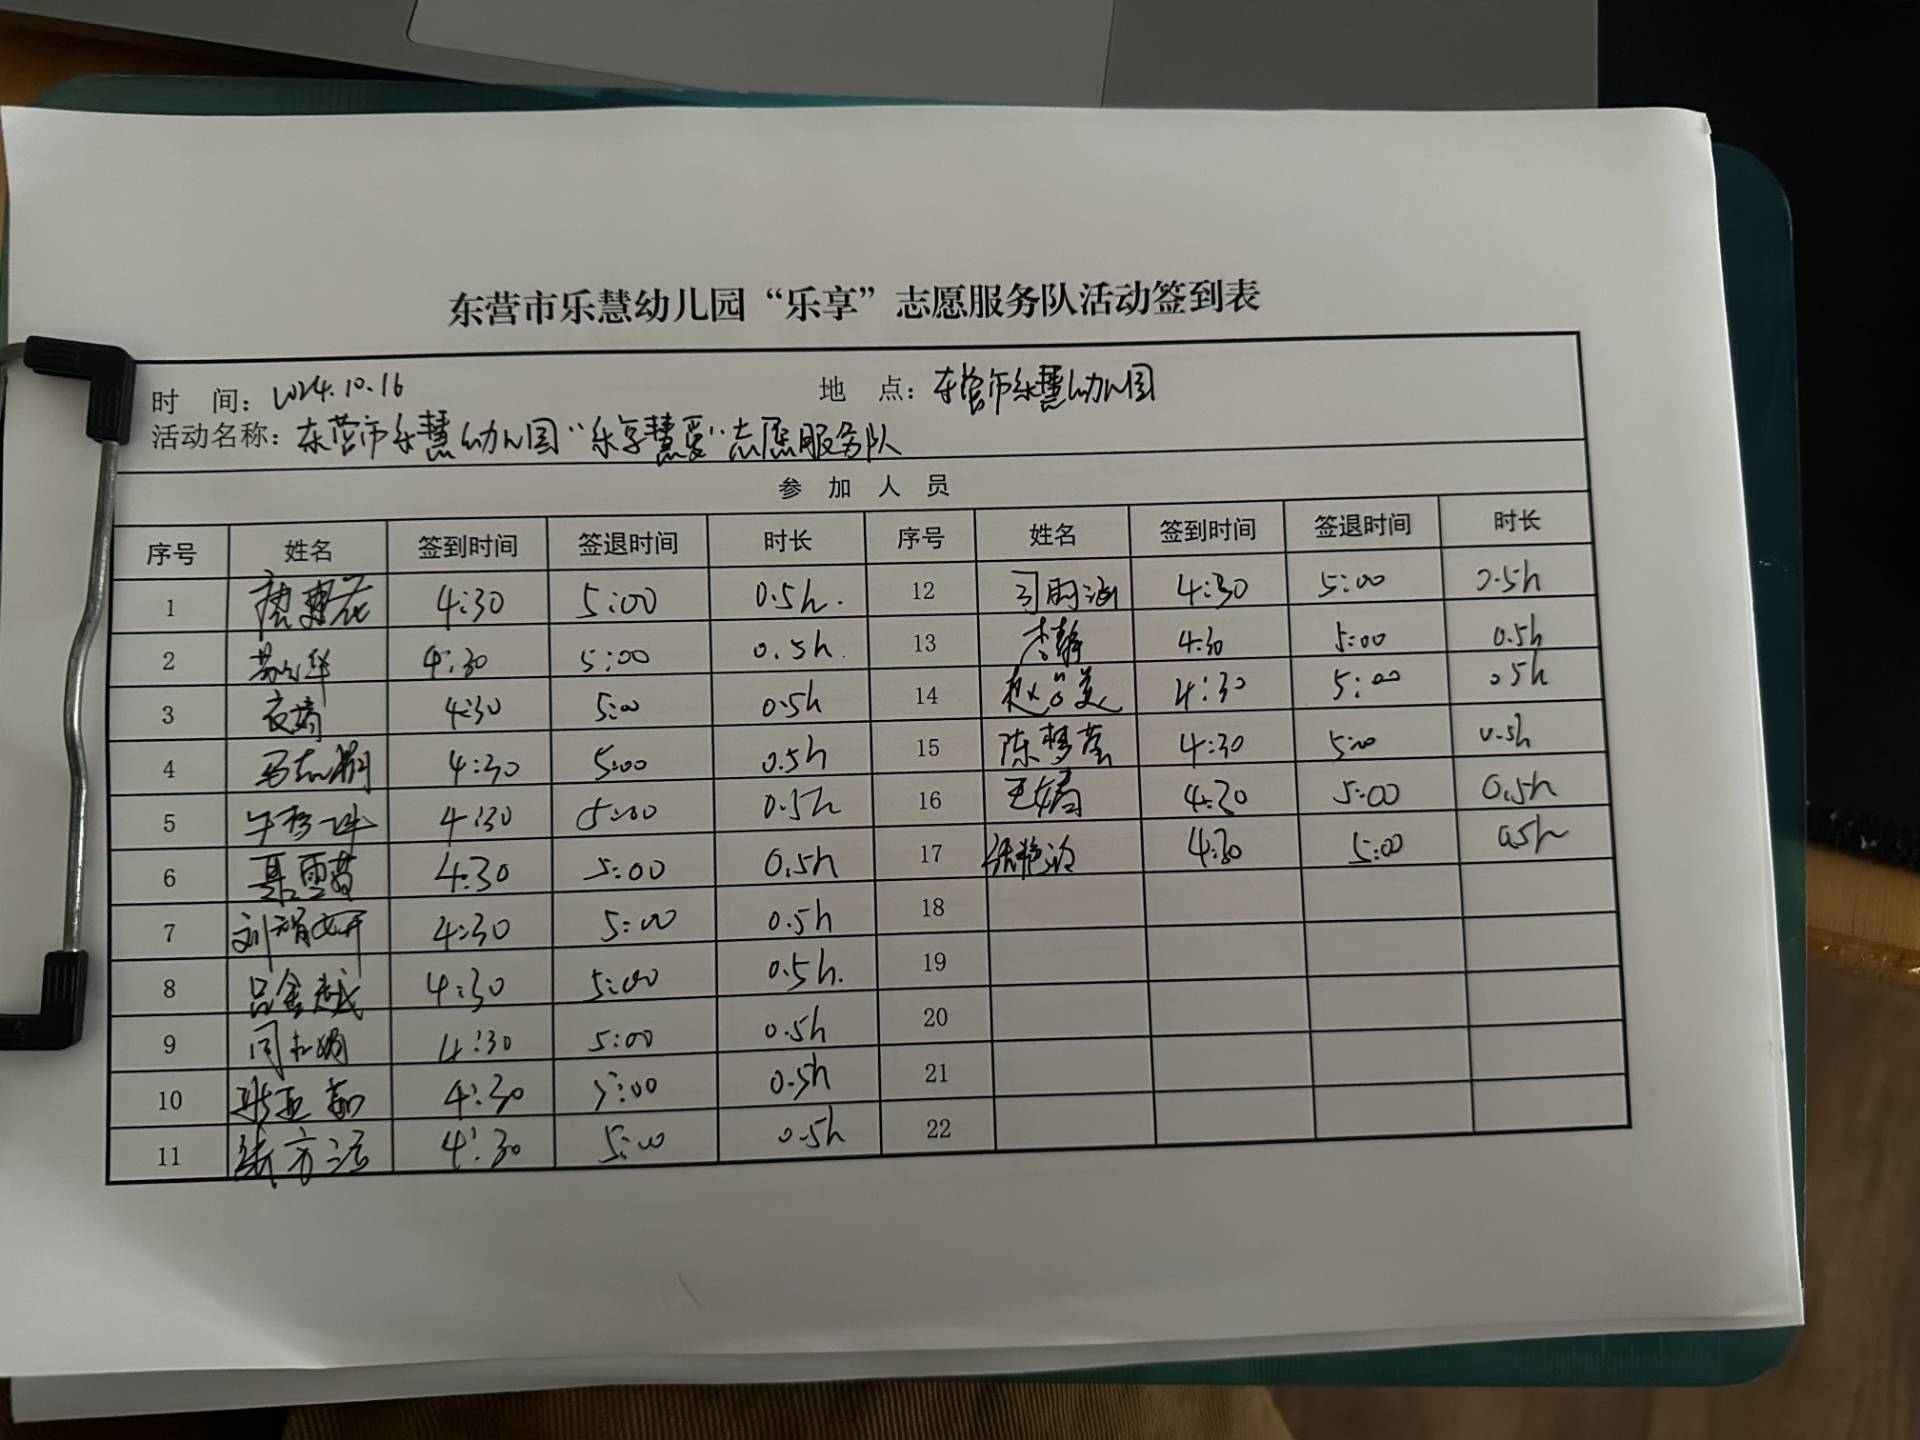 东营市乐慧幼儿园“乐享”志愿服务队活动签到表
时 间：2024.10.16 地 点：东营市乐慧幼儿园
活动名称：东营市乐慧幼儿园“乐享慧爱”志愿服务队
参 加 人 员
序号 姓名 签到时间 签退时间 时长 序号 姓名 签到时间 签退时间 时长
1 4:30 5:00 0.5h. 12 4:30 5:00 0.5h
2 4:30 5:00 0.5h. 13 李静 4:30 5:00 0.5h
3 4:30 5:00 0.5h 14 赵 美 4:30 5:00 0.5h
4 4:30 5:00 0.5h 15 陈梦莹 4:30 5:00 0.5h
5 4:30 5:00 0.5h 16 王婧 4:30 5:00 0.5h
6 聂雪茜 4:30 5:00 0.5h 17 张艳波 4:30 5:00 0.5h
7 刘 妍 4:30 5:00 0.5h 18
8 吕金越 4:30 5:00 0.5h. 19
9 4:30 5:00 0.5h 20
10 张亚茹 4:30 5:00 0.5h 21
11 张方洁 4:30 5:00 0.5h 22